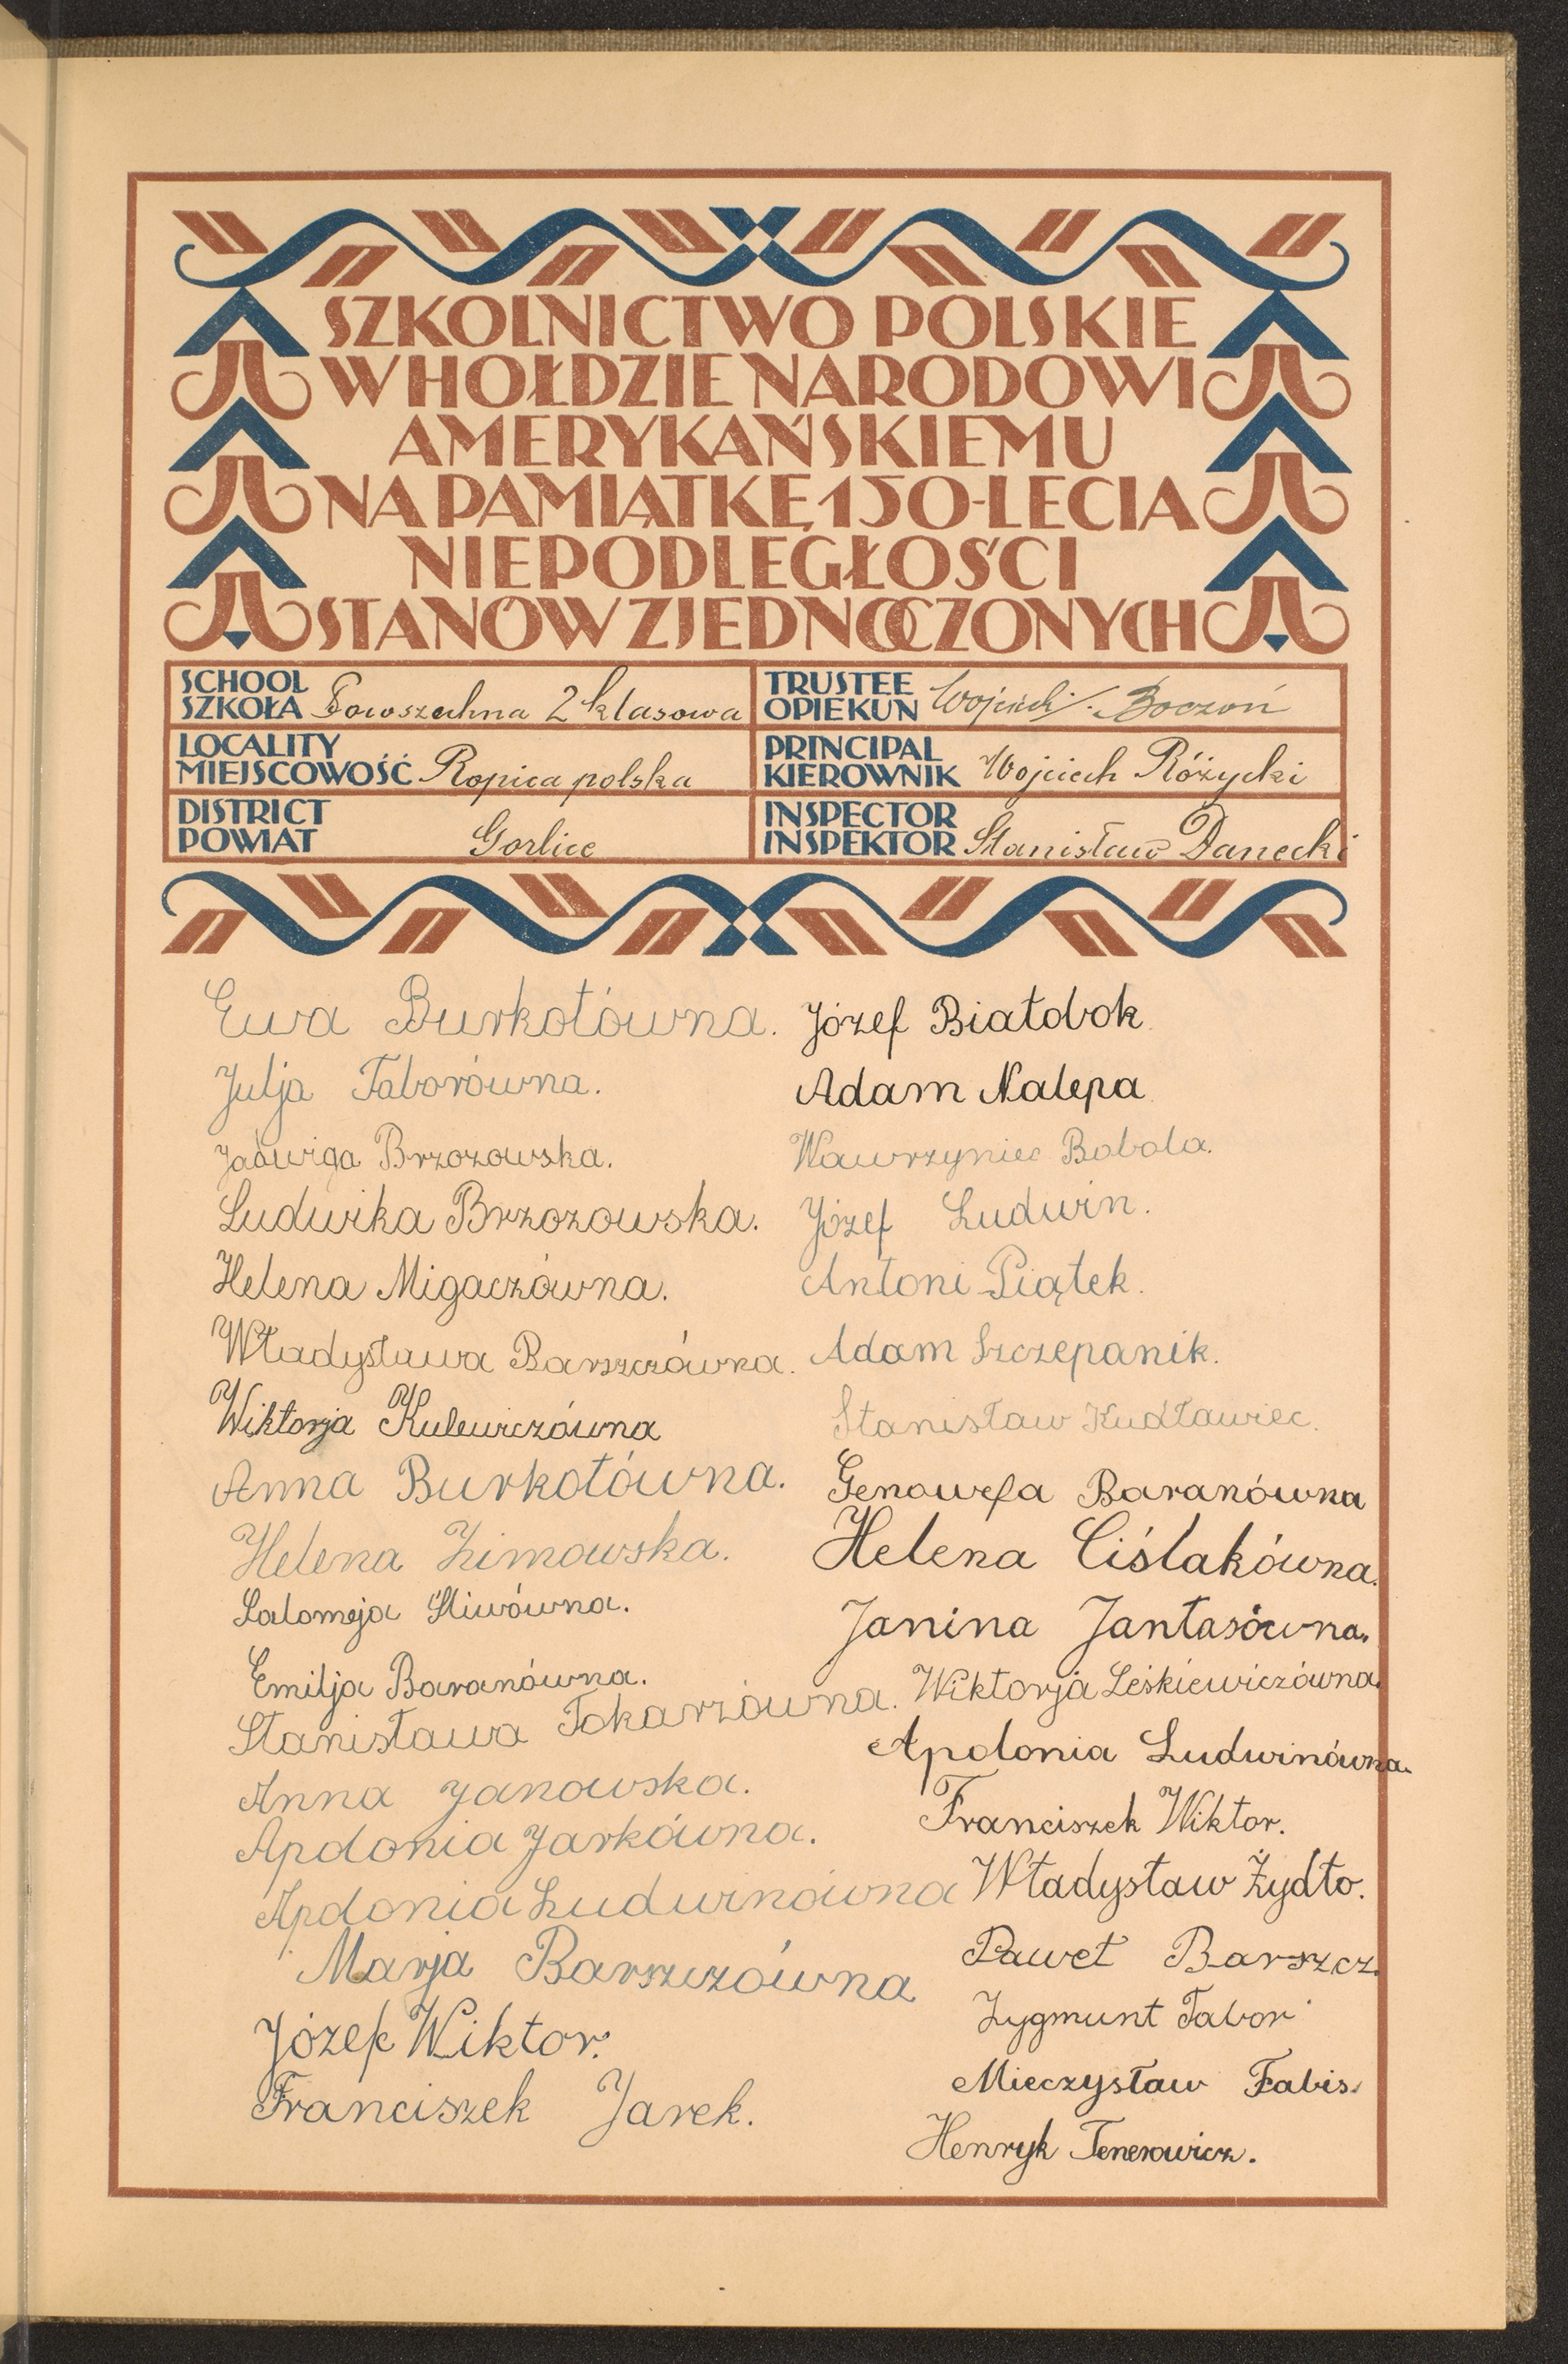 SZKOLNICTWO POLSKIE
W HOŁDZIE NARODOWI
AMERYKAŃSKIEMU
NA PAMIĄTKĘ 150-LECIA
NIEPODLEGŁOŚCI
STANÓW ZJEDNOCZONYCH
SCHOOL
SZKOŁA Powszechna 2 klasowa
LOCALITY
MIEJSCOWOŚĆ Ropica polska
DISTRICT
POWIAT Gorlice
TRUSTEE
OPIEKUN Wojciech Boczoń
PRINCIPAL
KIEROWNIK Wojciech Różycki
INSPECTOR
INSPEKTOR Stanisław Danecki
Ewa Burkotówna.
Julja Taborówna.
Jadwiga Brzozowska.
Ludwika Brzozowska.
Helena Migaczówna.
Władysława Barszczówna.
Wiktorja Kulewiczówna
Anna Burkotówna.
Helena Zimowska.
Salomeja Śliwówna.
Emilja Baranówna.
Stanisława Tokarzówna.
Anna Janowska.
Apolonia Jarkówna.
Apolonia Ludwinówna
Marja Barszczówna
Józef Wiktor.
Franciszek Jarek.
Józef Białobok
Adam Nalepa
Wawrzyniec Bobola.
Józef Ludwin.
Antoni Piątek.
Adam Szczepanik.
Stanisław Kudławiec.
Genowefa Baranówna
Helena Ciślakówna.
Janina Jantasówna.
Wiktorja Leśkiewiczówna.
Apolonia Ludwinówna.
Franciszek Wiktor.
Władysław Żydło.
Paweł Barszcz.
Zygmunt Tabor
Mieczysław Fabis.
Henryk Tenerowicz.